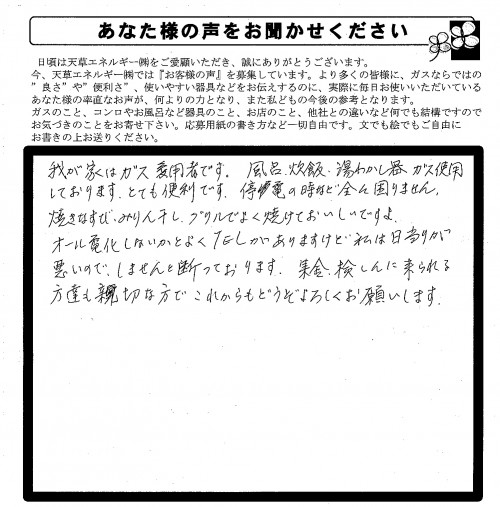 あなた様の声をお聞かせください
日頃は天草エネルギー㈱をご愛顧いただき、誠にありがとうございます。
今、天草エネルギー㈱では『お客様の声』を募集しています。より多くの皆様に、ガスならではの
”良さ”や”便利さ”、使いやすい器具などをお伝えするのに、実際に毎日お使いいただいている
あなた様の率直なお声が、何よりの力となり、また私どもの今後の参考となります。
ガスのこと、コンロやお風呂など器具のこと、お店のこと、他社との違いなど何でも結構ですので
お気づきのことをお寄せ下さい。応募用紙の書き方など一切自由です。文でも絵でもご自由に
お書きの上お送りください。
我が家はガス愛用者です。風呂、炊飯、湯わかし器 ガス使用
しております、とても便利です。停電の時など全ん困りません。
焼きなすび、みりん干し、グリルでよく焼けておいしいですよ、
オール電化しないかとよくTELがありますけど私は日当りが
悪いので、しませんと断っております。集金、検しんに来られる
方達も親切な方で これからもどうぞよろしくお願いします。